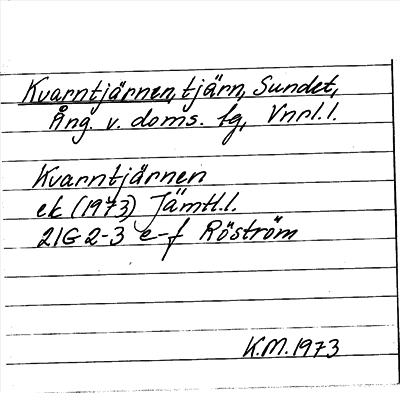 Kvarntjärnen, tjärn, Sundet,
Ång. v. doms. fg, Vnrl.l.
Kvarntjärnen
ek (1973) Jämtl.l.
21G 2-3 e-f Röström
K.M. 1973